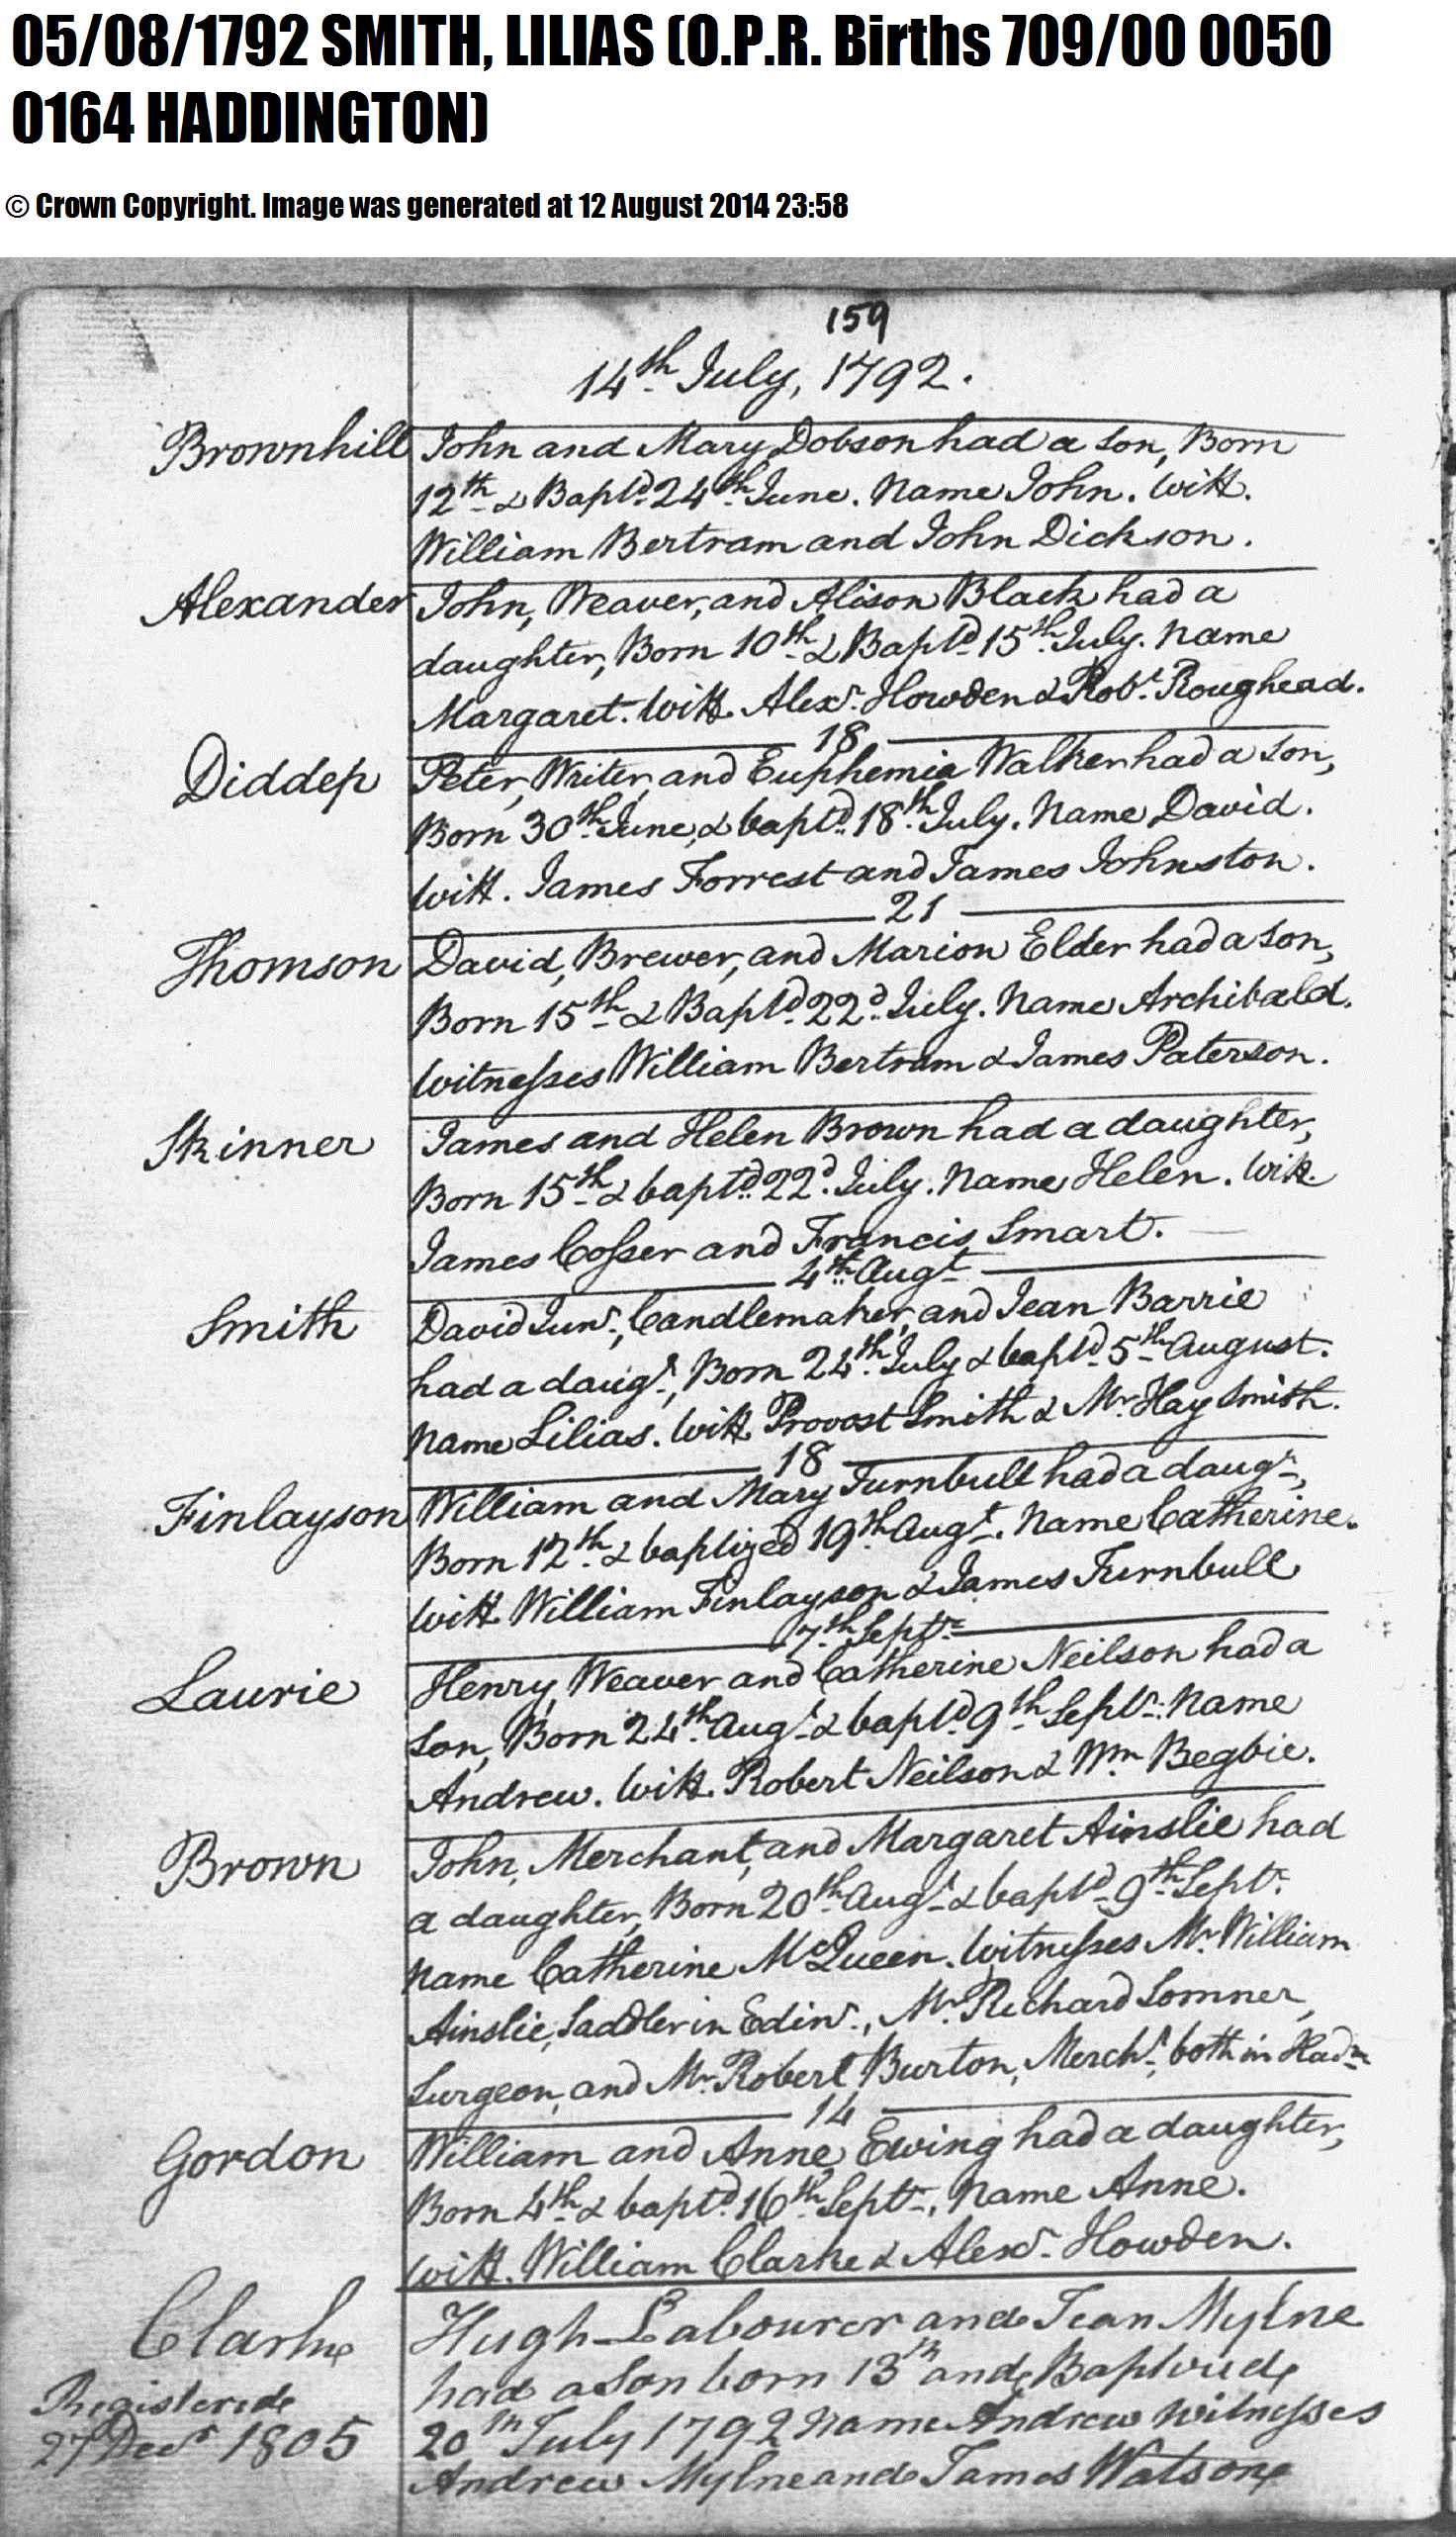 05/08/1792 SMITH, LILIAS (O.P.R. Births 709/00 0050
0164 HADDINGTON)
© Crown Copyright. Image was generated at 12 August 2014 23:58
159
14th July, 1792.
Brownhill John and Mary Dobson had a son, Born
12th & Baptd 24th June. Name John. Witt.
William Bertram and John Dickson.
Alexander John, Weaver, and Alison Black had a
daughter, Born 10th & Baptd 15th July. Name
Margaret. Witt. Alexr. Howden & Robt. Roughead.
18
Diddep Peter, Writer, and Euphemia Walker had a son,
Born 30th June, & baptd 18th July. Name David.
Witt. James Forrest and James Johnston.
21
Thomson David, Brewer, and Marion Elder had a son,
Born 15th & Baptd 22d July. Name Archibald.
Witnesses William Bertram & James Paterson.
Skinner James and Helen Brown had a daughter,
Born 15th & baptd 22d July. Name Helen. Witt.
James Cosser and Francis Smart.
4th Augt
Smith David Junr., Candlemaker, and Jean Barrie
had a daugr., Born 24th July & baptd 5th August.
Name Lilias. Witt. Provost Smith & Mr. Hay Smith.
18
Finlayson William and Mary Turnbull had a daugr.,
Born 12th & baptized 19th Augt. Name Catherine.
Witt. William Finlayson & James Turnbull
7th Septr.
Laurie Henry, Weaver and Catherine Neilson had a
Son, Born 24th Augt & baptd 9th Septr. Name
Andrew. Witt. Robert Neilson & Wm Begbie.
Brown John, Merchant, and Margaret Ainslie had
a daughter, Born 20th Augt & baptd 9th Septr.
Name Catherine McQueen. Witnesses Mr. William
Ainslie, Saddler in Edinr., Mr. Richard Somner,
Surgeon, and Mr. Robert Burton, Mercht., both in Hadn
14
Gordon William and Anne Ewing had a daughter,
Born 4th & baptd 16th Septr., Name Anne.
Witt. William Clarke & Alexr. Howden.
Clarke Hugh Labourer and Jean Mylne
had a Son born 13th and Baptized
Registered 20th July 1792 Name Andrew Witnesses
27 Decr 1805 Andrew Mylne and James Watson